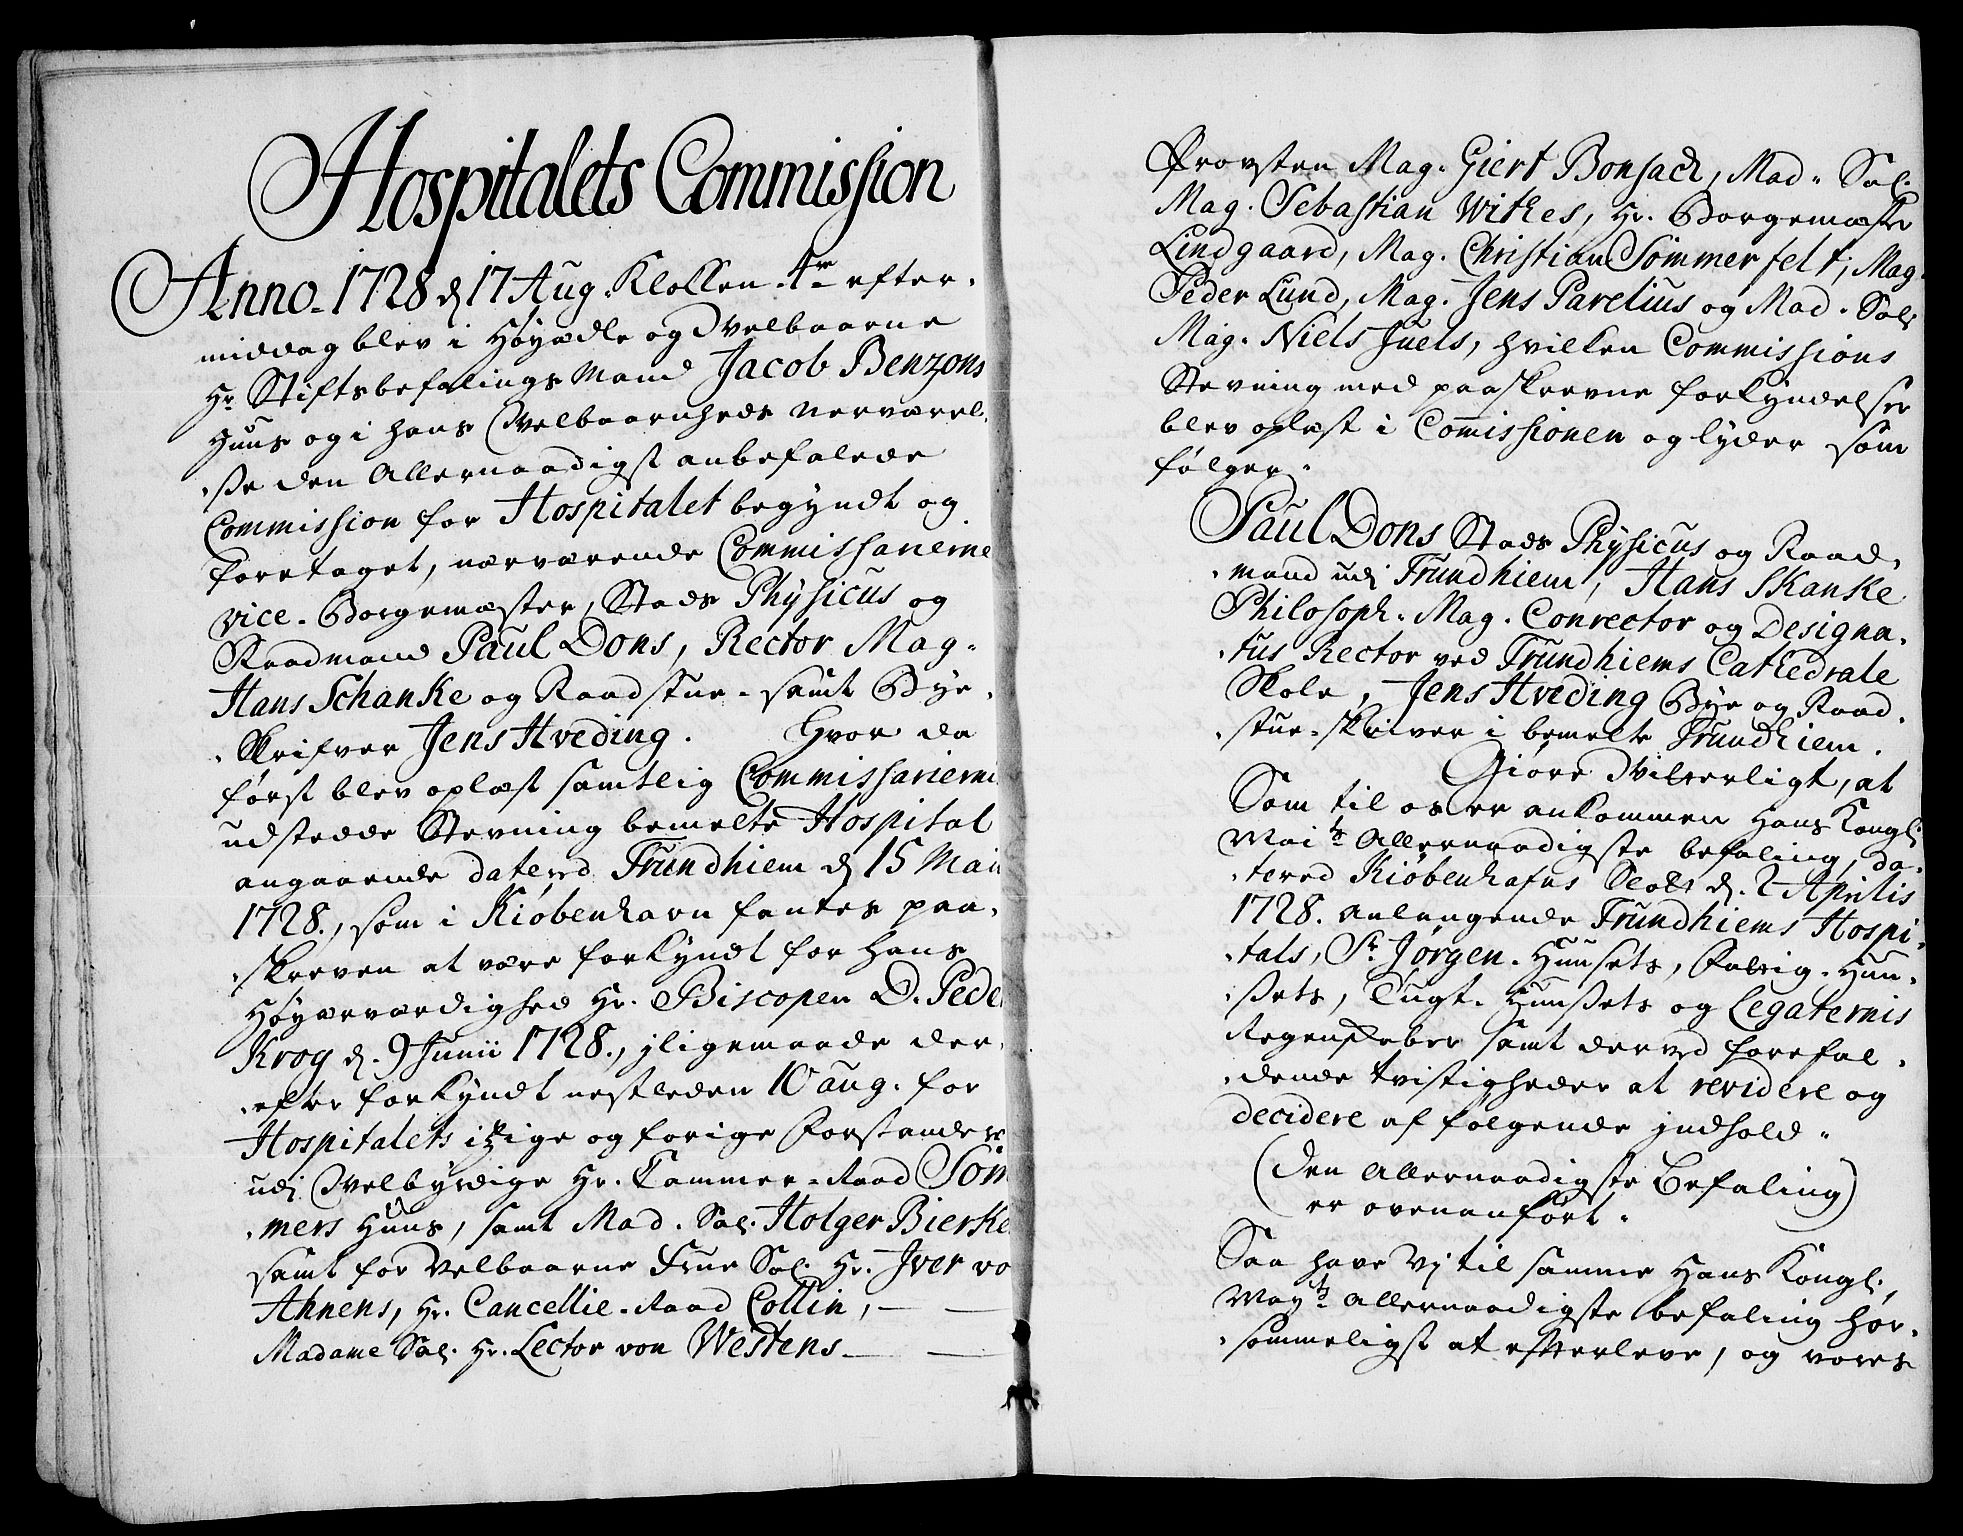 Hospitalets Commission
Anno 1728 d 17 Aug. Klokken 4re efter-
middag blev i Höyædle og Welbaarne
Hr Stiftsbefalings Mand Jacob Benzons
Huus og i hans Welbaarnheds nerværel-
-se den Allernaadigst anbefalede
Commission for Hospitalet begyndt og
foretaget, nærværende Commissarierne
vice-Borgemæster, Stads Physicus og
Raadmand Paul Dons, Rector Mag-
Hans Schanke og Raadstue- samt Bye-
-Skrifver Jens Hveding. Hvor da
först blev oplæst samtlig Commissarierni
udstedde Stevning bemelte Hospital
angaaende datered Trundhiem d 15 Maii
1728., som i Kiöbenhavn fantes paa-
-skreven at være forkyndt for Hans
Höyærværdighed Hr. Biscopen D. Peder
Krog d. 9 Junii 1728., jligemaade der-
-efter forkyndt nestleden 10 aug. for
Hospitalets itzige og forige Forstandere
udj Welbyrdige Hr. Cammer-Raad Söm
-mers Huus, samt Mad. Sal. Holger Bierke
samt for Velbaarne Frue Sal. Hr. Iver vo
Ahnens, Hr. Cancellie-Raad Collin,
Madame Sal. Hr. Lector von Westens
Provsten Mag. Giert Bonsach, Mad. Sal.
Mag. Sebastian Withes, Hr. Borgemæster
Lindgaard, Mag. Christian Sommerfelt, Mag.
Peder Lund, Mag. Jens Parelius og Mad. Sal.
Mag. Niels Juels, hvilken Commissions
Stevning med paaskrevne forkyndelser
blev oplæst i Comissionen og lyder som
fölger.
Paul Dons Stads Physicus og Raad-
-mand udj Trundhiem, Hans Skanke
Philosoph. Mag. Conrector og Designa-
-tus Rector ved Trundhiems Cathedrale
Skole, Jens Hveding Bye og Raad-
-stue-skriver i bemelte Trundhiem.
Giöre Vitterligt, at
Som til os er ankommen Hans Kongl.
Mai:ts Allernaadigste befaling, da-
-tered Kiöbenhafns Slott d. 2 Aprilis
1728. anlangende Trundhiems Hospi-
-tals, St. Jörgen-Huusets, Fattig-Huu-
-sets, Tugt-Huusets og Legaternis
Regenskaber samt derved forefal-
-dende tvistigheder at revidere og
decidere af fölgende jndhold.
(Den Allernaadigste Befaling)
er ovenanfört.
Saa have Vj til samme Hans Kongl.
May:ts Allernaadigste befaling hör-
-sommeligst at efterleve, og vores